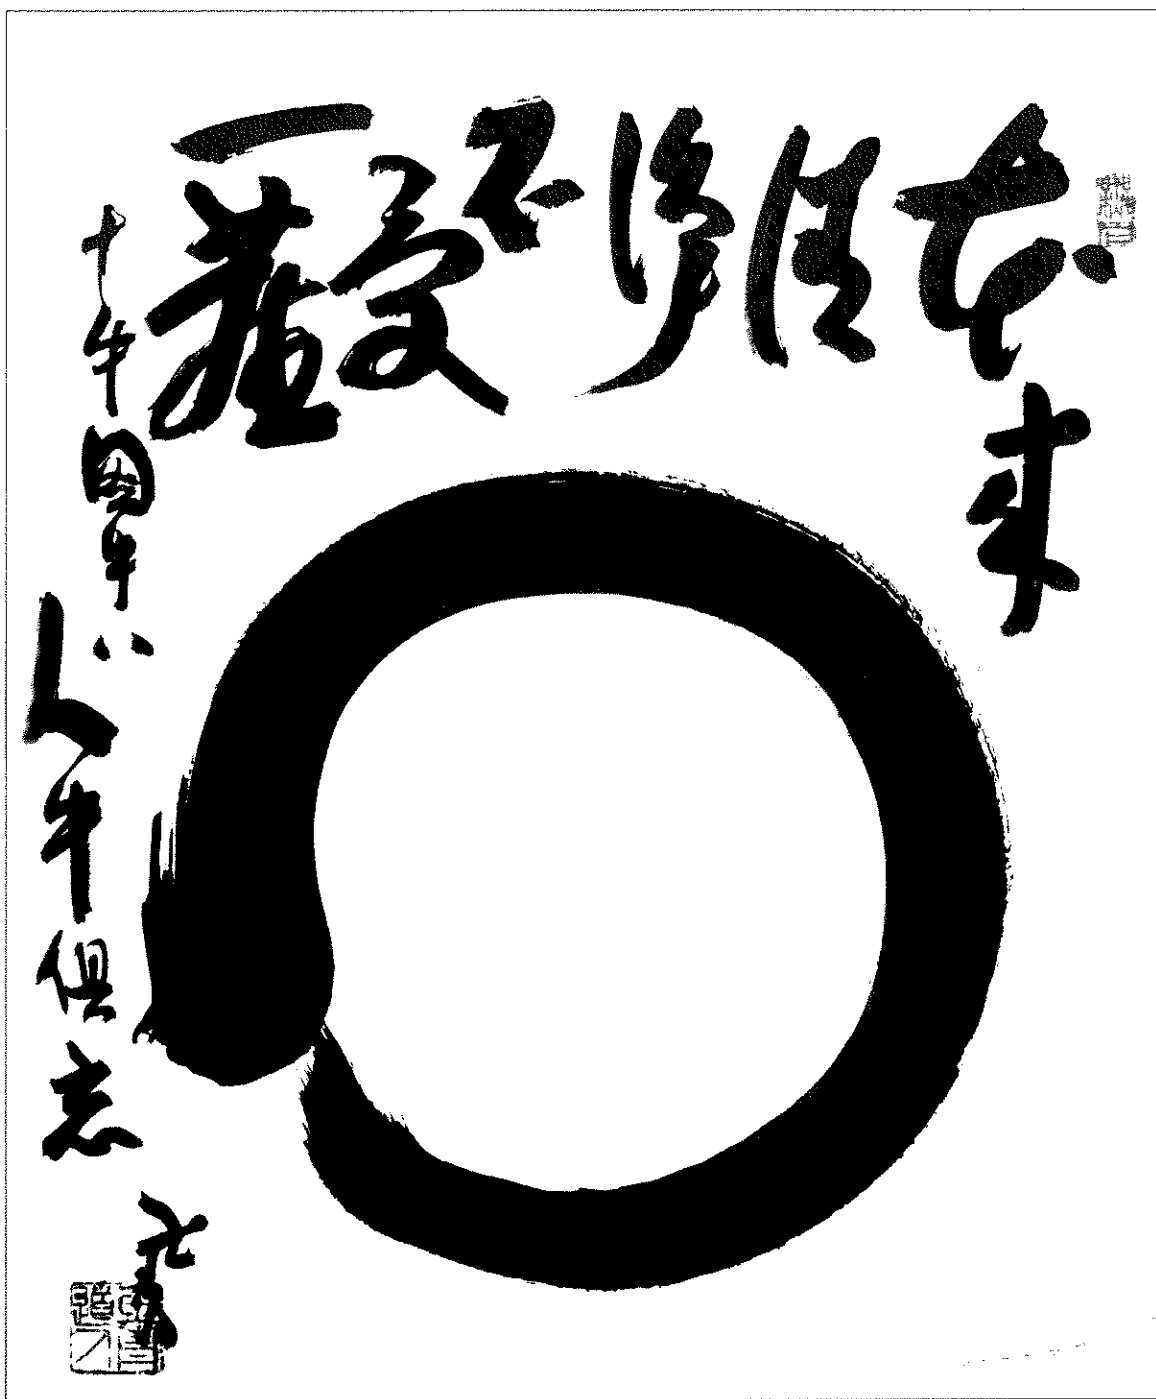 本来
清
浄
不
受
一塵
十牛図八
人牛倶忘